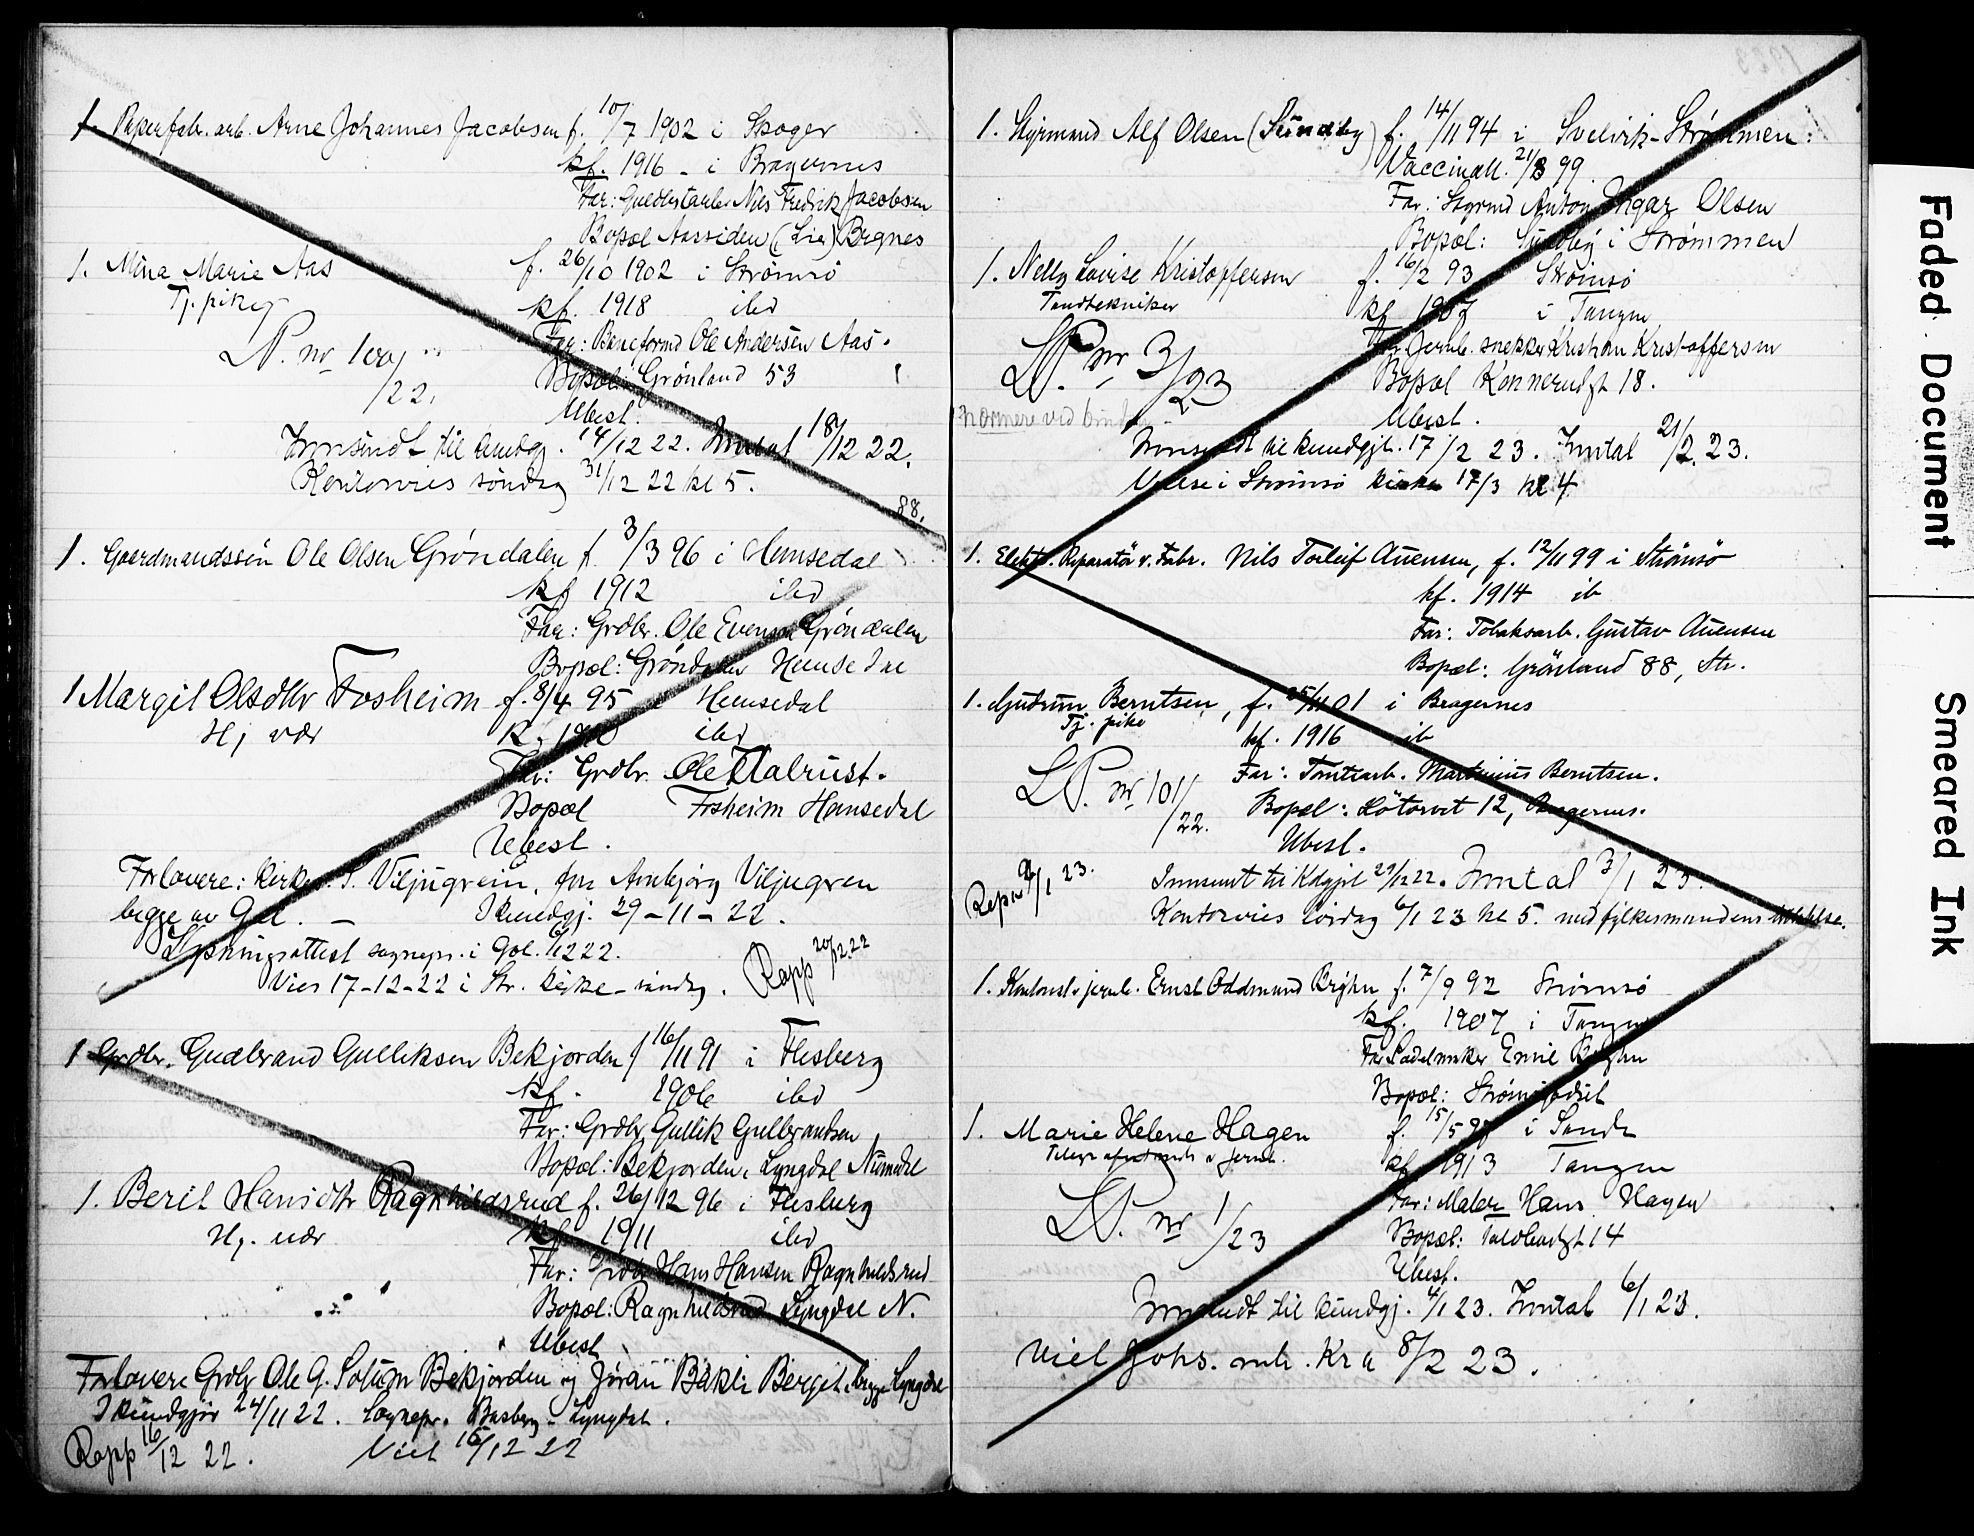 1. Papirfabr. arb. Arne Johannes Jacobsen f. 10/7 1902 i Skoger
kf. 1916 - i Bragernes
Far: Nils Fredrik Jacobsen
Bopæl Aassiden (Lier) Bragnes
1. Mina Marie Aas f. 26/10 1902 i Strömsö
Tj. pike kf. 1918 ibd
LP. nr 100/22. Far: Ole Andersen Aas.
Bopæl: Grönland 53
Ubesl.
Innsendt til kundgj. 14/12 22. Inntat 18/12 22.
Kontorvies söndag 31/12 22 kl 5.
88.
1. Gaardmandssön Ole Olsen Gröndalen f. 3/3 96 i Hemsedal
kf 1912 ibd
Far: Grdbr. Ole Evensen Gröndalen
Bopæl: Gröndalen Hemsedal
1 Margit Olsdtr Fosheim f. 8/4 95 i Hemsedal
Hj vær K. ibd
Far: Grdbr. Ole Ulabrust.
Bopæl Fosheim Hemsedal
Ubesl.
Forlovere: Kirkes. S. Viljugrein, fru Arnbjörg Viljugren
begge av Gol. - I kundgj. 29-11-22.
Lysningsattest sognepr. i Gol. 6/12 22.
Vies 17-12-22 i Str. kirke - söndag. Rapp 20/12.22
1 Grdbr. Gudbrand Gulliksen Bekjorden f 16/11 91 i Flesberg
kf. 1906 ibd
Far: Grdbr Gullik Gulbrandsen
Bopæl: Bekjorden, Lyngdal Numedal
1. Berit Hansdtr Ragnhildsrud f. 26/12 96 i Flesberg
Hj. vær kf. 1911 ibd
Far: Grdbr Hans Hansen Ragnhildsrud
Bopæl: Ragnhildsrud Lyngdal N.
Ubesl
Forlovere Grdbr Ole G. Solum Bekjorden og Jöran Bakli Bergit begge Lyngdal
I kundgjör 24/11 22. Sognepr. Lyngdal.
Rapp 16/12 22. Viet 15/12 22
1. Styrmand Alf Olsen (Sundby) f. 14/11 94 i Svelvik-Strömmen.
Vaccinatt. 21/8 99.
Far: Styrmd Anton Ingar Olsen
Bopæl: Sundby i Strömmen
1. Nelly Lovise Kristoffersen f. 16/2 93 Strömsö
Tandtekniker kf 1907 i Tangen
LP. nr 3/23 Far: Jernb. snekker Kristian Kristoffersen
Bopæl Konnerudgt 18.
nærmere ved Ubesl.
Innsendt til kundgj. 17/2 23. Inntat 21/2. 23.
Vielse i Strömsö kirke 17/3 kl 4
1. Elektr. Reparatör v. Fabr. Nils Torleif Auensen, f. 12/11 99 i Strömsö
kf. 1914 ib
Far: Tobaksarb. Gustav Auensen
Bopæl: Grönland 88, Str.
1. Gudrun Berntsen, f. 25/11 01 i Bragernes
Tj. pike kf. 1916 ib
LP. nr 101/22. Far: Tomtearb. Martinius Berntsen.
Bopæl: Hötorvet 12, Bragernes.
Ubesl.
Rapp 9/1 23. Innsendt til Kdgjøl 29/12 22. Inntat 3/1 23.
Kontorvies lördag 6/1 23 kl 5. med fylkesmandens tillatelse.
1. Kontorist v jernb. Ernst Oddmund Bryhn f. 7/9 92 Strömsö
kf. 1907 i Tangen
Far Sadelmaker Emil Bryhn
Bopæl: Strömsgodset
1. Marie Helene Hagen f. 15/5 97 i Sande
v Jernb. kf 1913 Tangen
LP. nr 1/23 Far: Maler Hans Hagen
Bopæl: Toldbodgt 14
Ubesl.
Innsendt til kundgj. 4/1 23. Inntat 6/1 23.
Viet Johs. mh. Kr a 8/2 23.
Faded Document
Smeared Ink